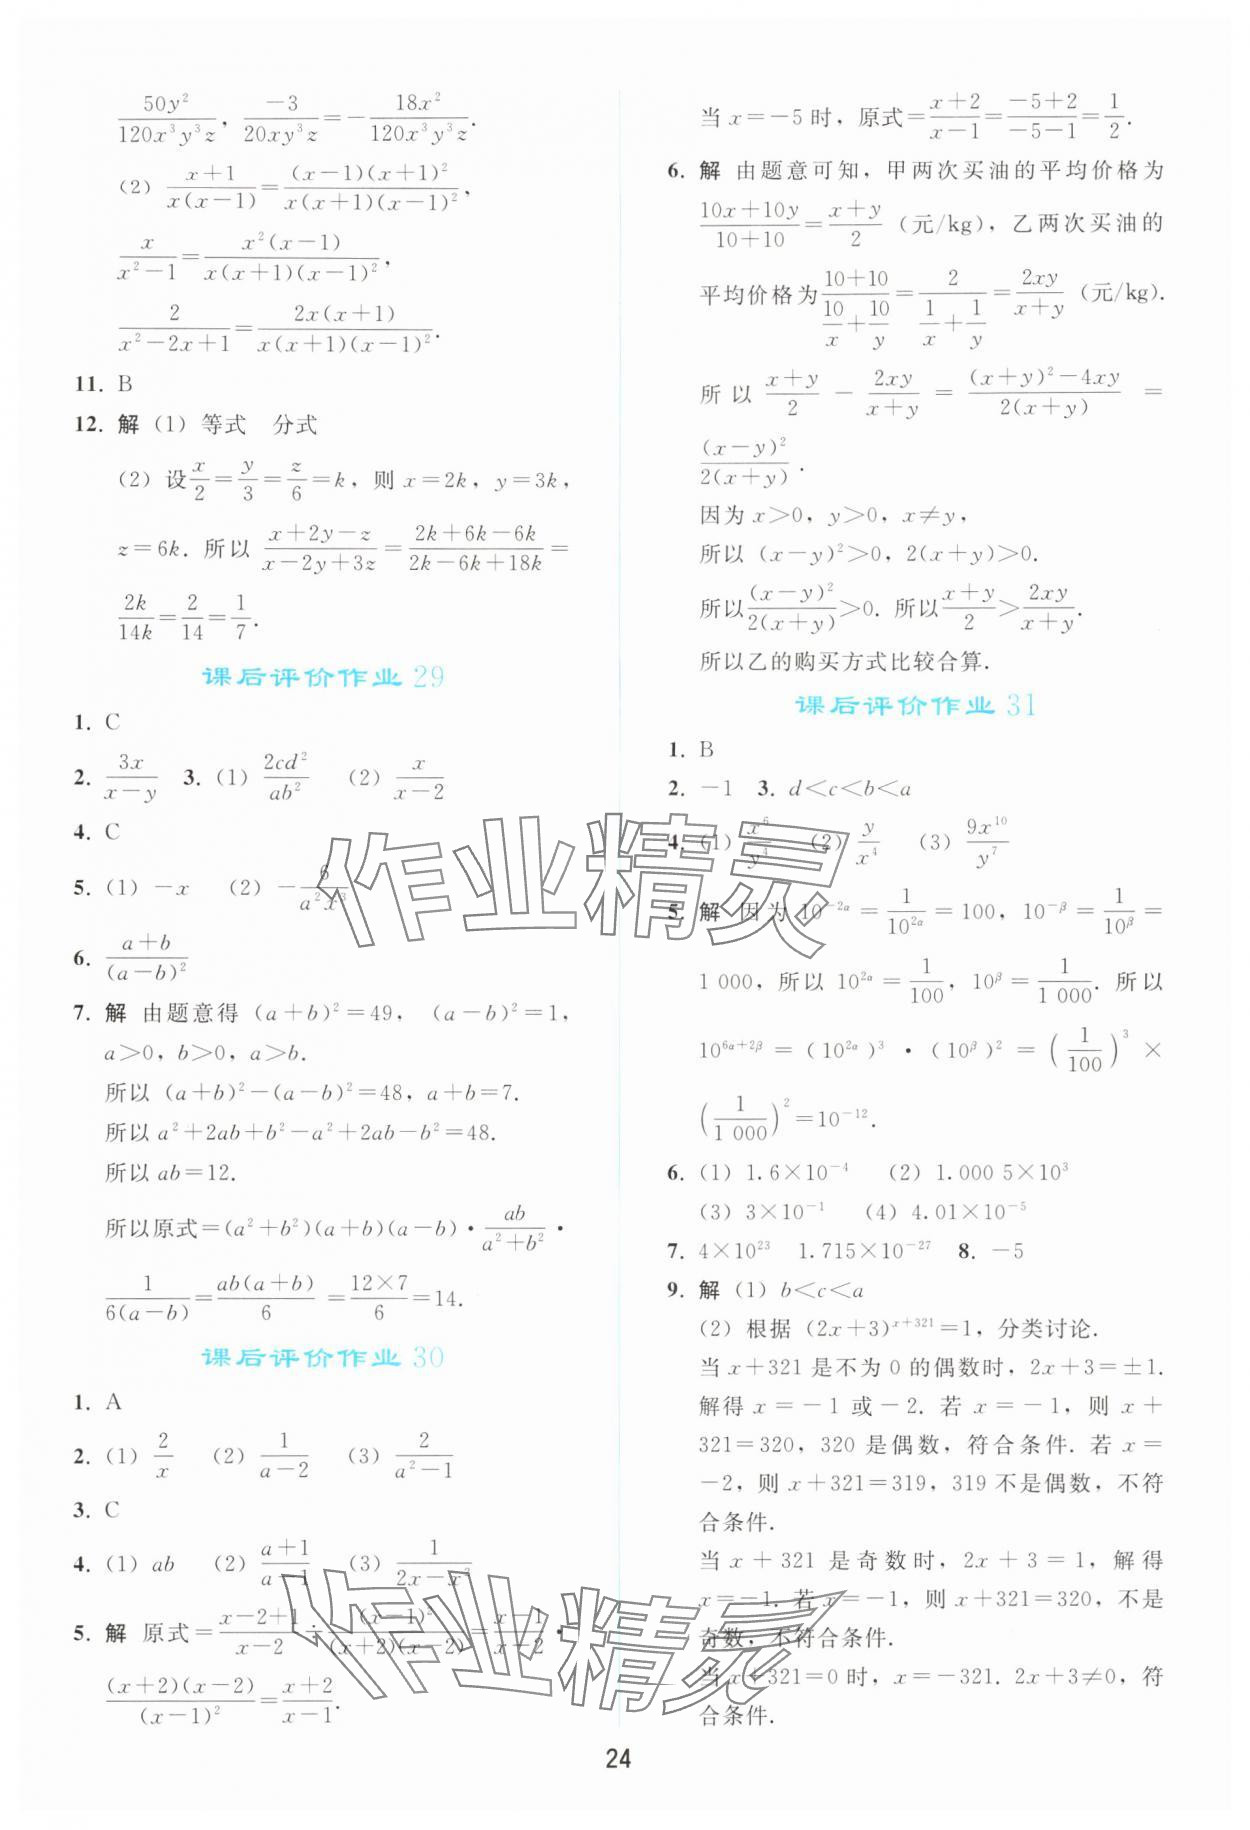 50y²/(120x³y³z), -3/(20xy³z)=-18x²/(120x³y³z).
(2) (x+1)/(x(x-1))=((x-1)(x+1)²)/(x(x+1)(x-1)²),
x/(x²-1)=(x²(x-1))/(x(x+1)(x-1)²),
2/(x²-2x+1)=(2x(x+1))/(x(x+1)(x-1)²).
11. B
12. 解 (1) 等式 分式
(2) 设 x/2=y/3=z/6=k, 则 x=2k, y=3k,
z=6k. 所以 (x+2y-z)/(x-2y+3z)=(2k+6k-6k)/(2k-6k+18k)=
2k/14k=2/14=1/7.
课后评价作业 29
1. C
2. 3x/(x-y) 3. (1) 2cd²/ab² (2) x/(x-2)
4. C
5. (1) -x (2) -6/(a²x³)
6. (a+b)/(a-b)²
7. 解 由题意得 (a+b)²=49, (a-b)²=1,
a>0, b>0, a>b.
所以 (a+b)²-(a-b)²=48, a+b=7.
所以 a²+2ab+b²-a²+2ab-b²=48.
所以 ab=12.
所以原式=(a²+b²)(a+b)(a-b)·ab/(a²+b²)·
1/(6(a-b))=ab(a+b)/6=(12×7)/6=14.
课后评价作业 30
1. A
2. (1) 2/x (2) 1/(a-2) (3) 2/(a²-1)
3. C
4. (1) ab (2) (a+1)/(a-1) (3) 1/(2x-x²)
5. 解 原式=(x-2+1)/(x-2)÷(x-1)²/((x+2)(x-2))=(x-1)/(x-2)·
((x+2)(x-2))/(x-1)²=(x+2)/(x-1).
当 x=-5 时, 原式=(x+2)/(x-1)=(-5+2)/(-5-1)=1/2.
6. 解 由题意可知, 甲两次买油的平均价格为
(10x+10y)/(10+10)=(x+y)/2 (元/kg), 乙两次买油的
平均价格为(10+10)/(10/x+10/y)=2/(1/x+1/y)=2xy/(x+y) (元/kg).
所以 (x+y)/2 - 2xy/(x+y) = ((x+y)²-4xy)/(2(x+y)) =
(x-y)²/(2(x+y)).
因为 x>0, y>0, x≠y,
所以 (x-y)²>0, 2(x+y)>0.
所以(x-y)²/(2(x+y))>0. 所以(x+y)/2>2xy/(x+y).
所以乙的购买方式比较合算.
课后评价作业 31
1. B
2. -1 3. d<c<b<a
4. (1) x⁶/y⁴ (2) y/x⁴ (3) 9x¹⁰/y⁷
5. 解 因为 10^(-2α)=1/10^(2α)=100, 10^(-β)=1/10^β=
1 000, 所以 10^(2α)=1/100, 10^β=1/1 000. 所以
10^(6α+2β)=(10^(2α))³·(10^β)²=(1/100)³×
(1/1 000)²=10⁻¹².
6. (1) 1.6×10⁻⁴ (2) 1.000 5×10³
(3) 3×10⁻¹ (4) 4.01×10⁻⁵
7. 4×10²³ 1.715×10⁻²⁷ 8. -5
9. 解 (1) b<c<a
(2) 根据 (2x+3)^(x+321)=1, 分类讨论.
当 x+321 是不为 0 的偶数时, 2x+3=±1.
解得 x=-1 或-2. 若 x=-1, 则 x+
321=320, 320 是偶数, 符合条件. 若 x=
-2, 则 x+321=319, 319 不是偶数, 不符
合条件.
当 x+321 是奇数时, 2x+3=1, 解得
x=-1. 若 x=-1, 则 x+321=320, 不是
奇数, 不符合条件.
当 x+321=0 时, x=-321. 2x+3≠0, 符
合条件.
作业精灵
作业精灵
24